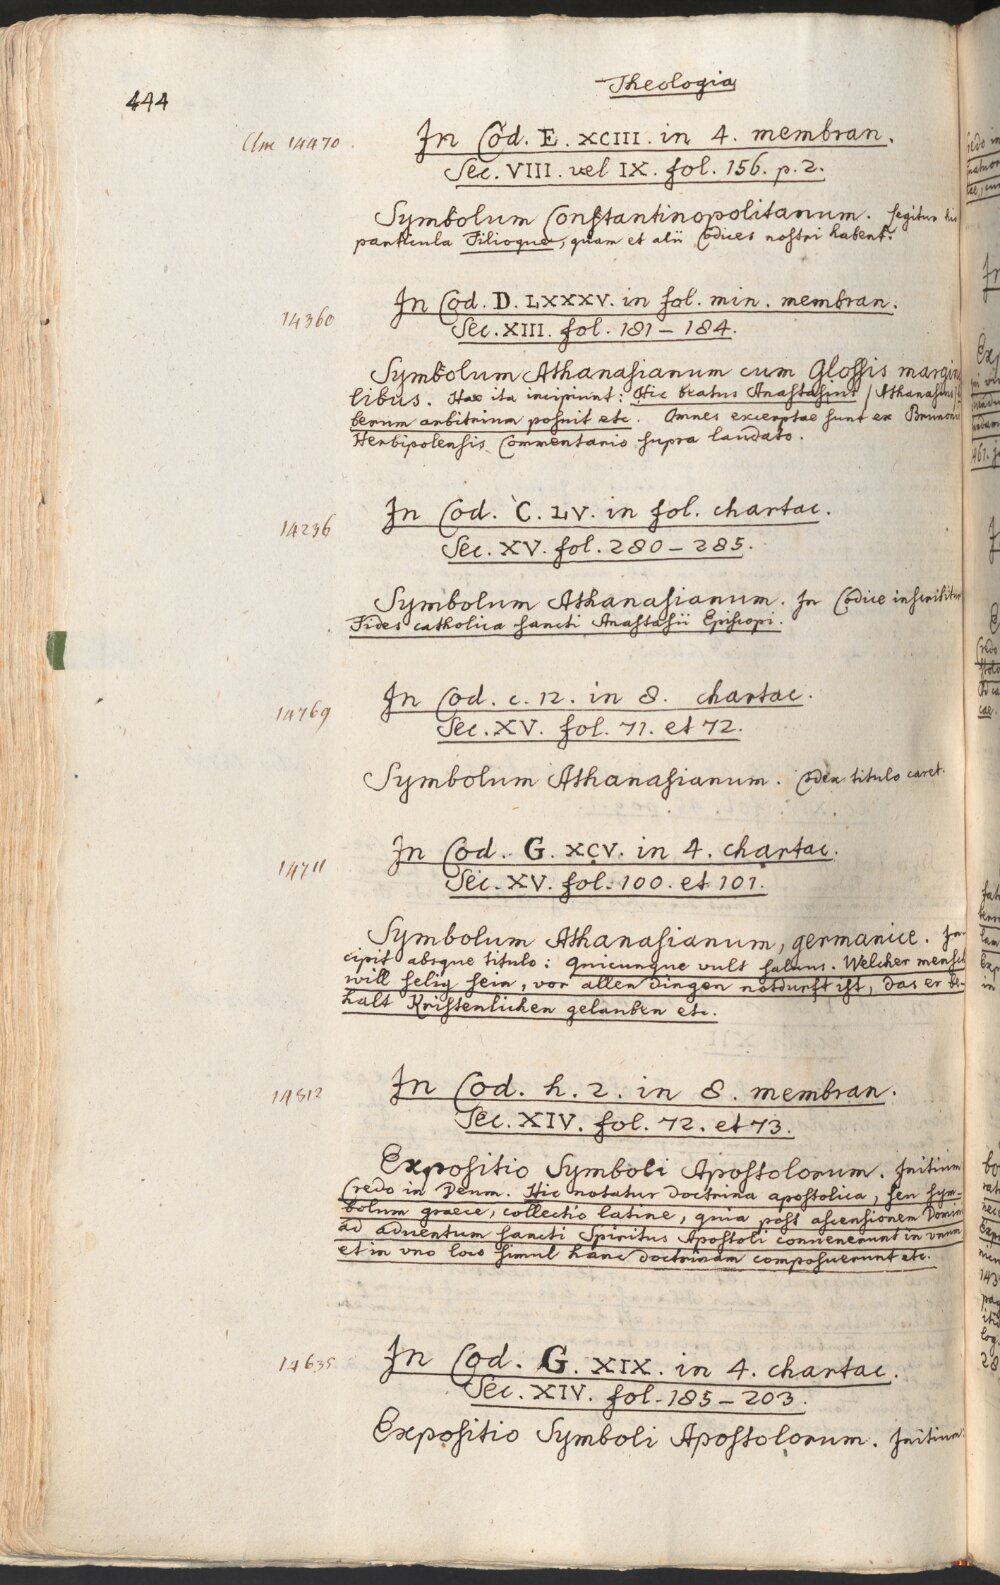 444
Theologia
Clm 14470.
In Cod. E. XCIII. in 4. membran.
Sec. VIII. vel IX. fol. 156. p. 2.
Symbolum Constantinopolitanum. Legitur
particula Filioque, quam et alii Codices nostri habent.
14360
In Cod. D. LXXXV. in fol. min. membran.
Sec. XIII. fol. 181 – 184.
Symbolum Athanasianum cum Glossis margin
libus. Hae ita incipiunt: Hic beatus Anastasius / Athanasius /
berum arbitrium posuit etc. Omnes excerptae sunt ex Brunonis
Herbipolensis Commentario supra laudato.
14236
In Cod. C. LV. in fol. chartac.
Sec. XV. fol. 280 – 285.
Symbolum Athanasianum. In Codice inscribitur
Fides catholica sancti Anastasii Episcopi.
14769
In Cod. c. 12. in 8. chartac.
Sec. XV. fol. 71. et 72.
Symbolum Athanasianum. Codex titulo caret.
14711
In Cod. G. XCV. in 4. chartac.
Sec. XV. fol. 100. et 101.
Symbolum Athanasianum, germanice. In-
cipit absque titulo: Quicunque vult salvus. Welcher mensch
will selig sein, vor allen Dingen notdurft ist, das er be-
halt Kristenlichen gelauben etc.
14812
In Cod. h. 2. in 8. membran.
Sec. XIV. fol. 72. et 73.
Expositio Symboli Apostolorum. Initium
Credo in Deum. Hic notatur doctrina apostolica, seu sym-
bolum graece, collectio latine, quia post ascensionem Domini
ad adventum sancti Spiritus Apostoli convenerunt in unum
et in uno loco simul hanc doctrinam composuerunt etc.
14635
In Cod. G. XIX. in 4. chartac.
Sec. XIV. fol. 185 – 203.
Expositio Symboli Apostolorum. Initium